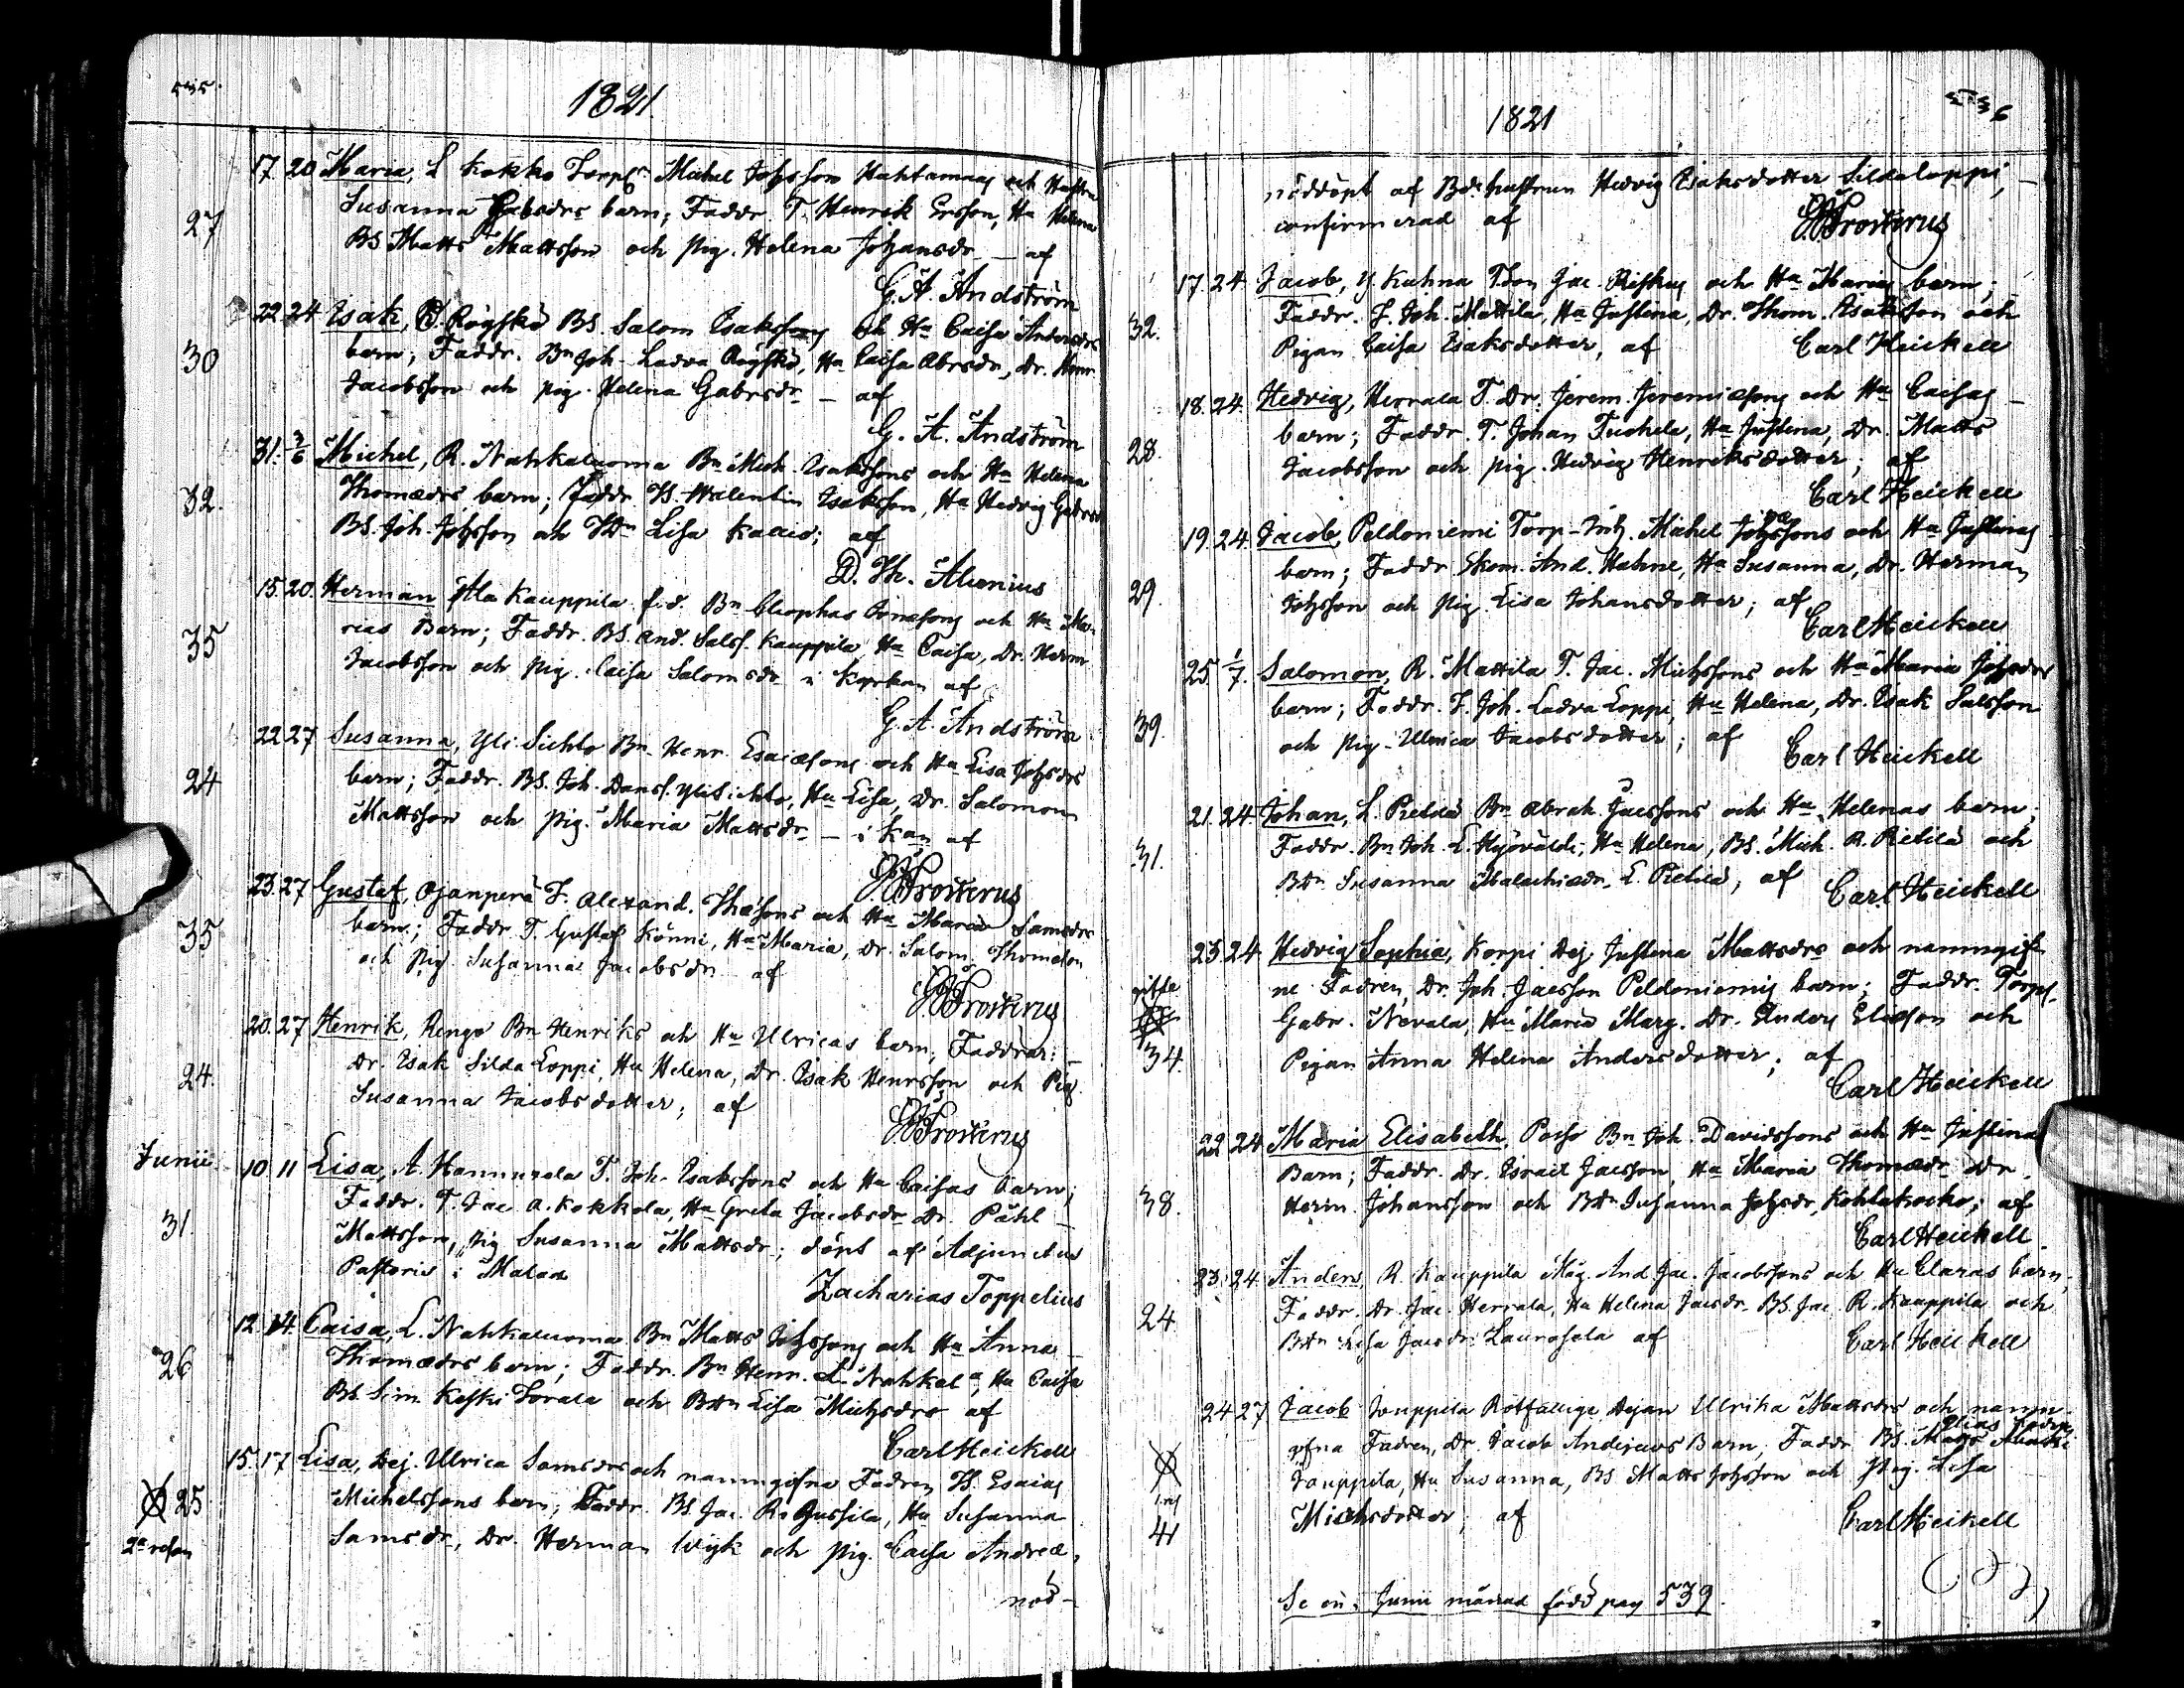 535.
1821.
17. 20 Maria, L Kokko Torps. Michel Johsson Hahtamaas och Hustru
27
Susanna Gabsdrs barn; Faddr. T. Henrik Ersson, Hu Helena
BS Matts Mattsson och pig. Helena Johansdr – af
G. A. Andström
22 24 Isak, R. Röyskö BS. Salom Isakssons och Hu Caisa Andersdrs
30
barn; Faddr. Bn Joh. Ladva Röyskö, Hu Caisa Abrsdr, Dr. Henr.
Jacobsson och pig. Helena Gabrsdr – af
G. A. Andström
31. 3/6 Michel, R. Nahkaluoma Bn Mich. Isakssons och Hu Helena
32.
Thomædrs barn; Faddr. IS. Walentin Isaksson, Hu Hedvig Gabrsdr
BS. Joh. Johsson och IDr Lisa Kaccio; af
D. Th. Alcenius
15. 20. Herman Ala Kauppila f.d. Bn Cleophas Jonæsons och Hu Ma-
35
rias Barn; Faddr. BS. And. Salss. Kauppila, Hu Caisa, Dr. Herm.
Jacobsson och pig. Caisa Salomsdr i Kyrkan af
G. A. Andström
22 27 Susanna, Yli Sichto Bn Henr. Esaiæsons och Hu Lisa Johsdrs
24
barn; Faddr. BS. Joh. Danss. Yli Sichto, Hu Lisa, Dr. Salomon
Mattsson och pig. Maria Mattsdr – i Kan af
Frosterus
23. 27 Gustaf, Ojanperä T. Alexand. Thæsons och Hu Maria Samsdrs
35
barn; Faddr. T. Gustaf Könni, Hu Maria, Dr. Salom. Thomæson
och pig. Susanna Jacobsdr af
Frosterus
20. 27 Henrik, Rengo Bn Henriks och Hu Ulricas barn; Faddrar: –
24.
Dr. Isak Silda Loppi, Hu Helena, Dr. Isak Henrsson och Pig.
Susanna Jacobsdotter; af
Frosterus
Junii. 10. 11 Lisa, A. Hannuxela T. Joh. Isakssons och Hu Caisas barn;
31.
Faddr. T. Jac A. Kokkola, Hu Greta Jacobsdr Dr. Påhl –
Mattsson, pig Susanna Mattsdr; döpt af Adjunctus
Pastoris i Malax
Zacharias Toppelius
12. 14. Caisa, L. Nahkaluoma Bn Matts Johssons och Hu Anna –
26
Thomædrs barn; Faddr. Bn Henr. L. Nahkala, Hu Caisa
BS. Sim. Keski Torala och BDr Lisa Michsdr af
Carl Heickell
15. 17 Lisa, Dej. Ulrica Samsdrs och namngifne Fadren IS. Esaias
25
Michelssons barn; Faddr. BS. Jac. R. Jussila, Hu Susanna
2a resan
Samsdr, Dr. Herman Wyk och pig. Caisa Andreæ,
nöd-
536
1821
nöddöpt af Bdehustrun Hedvig Isaksdotter Sildaloppi, –
confirmerad af
Frosterus
17. 24. Jacob, Y. Kuhna Tson Jac. Riskus och Hu Marias barn;
32.
Faddr. T. Joh. Mattila, Hu Justina, Dr. Thom. Isaksson och
Pigan Caisa Isaksdotter, af
Carl Heickell
18. 24. Hedvig, Herrala T. Dr. Jerem. Jeremiæsons och Hu Caisas –
28.
barn; Faddr. T. Johan Tuohela, Hu Justina, Dr. Matts
Jacobsson och pig. Hedvig Henriksdotter; af
Carl Heickell
19. 24. Jacob, Peldoniemi Torp-Inh. Michel Johssons och Hu Justinas
29.
barn; Faddr. Skom. And. Hahne, Hu Susanna, Dr. Herman
Johsson och pig Lisa Johansdotter; af
Carl Heickell
25. 1/7. Salomon, R. Mattila T. Jac. Michssons och Hu Maria Johsdrs
39.
barn; Faddr. T. Joh. Ladva Loppi, Hu Helena, Dr. Isak Salsson
och pig. Ulrica Jacobsdotter; af
Carl Heickell
21. 24. Johan, L. Pietilä Bn Abrah. Jacssons och Hu Helenas barn;
31.
Faddr. Bn Joh. L. Hyövälti, Hu Helena, BS. Mich. R. Pietilä och
BDr. Susanna Malachiædr, L. Pietilä, af
Carl Heickell
23. 24. Hedvig Sophia, Korpi Dej Justina Mattsdrs och namngif-
gifte
ne Fadren, Dr. Joh. Jacsson Peldoniemis barn; Faddr. Torps.
Gabr. Nevala, Hu Maria Marg. Dr. Anders Eliæson och
34.
Pigan Anna Helena Andersdotter; af
Carl Heickell
22 24 Maria Elisabeth, Poiso Bn Joh. Davidssons och Hu Justinas
38.
Barn; Faddr. Dr. Israel Jacsson, Hu Maria Thomædr Dr.
Herm. Johansson och BDr Susanna Johsdr, Kohlakocko; af
Carl Heickell.
23. 24. Anders, R. Kauppila Måg. And. Jac. Jacobssons och Hu Claras barn;
24
Faddr. Dr. Jac. Herrala, Hu Helena Jacsdr. BS. Jac. R. Kauppila och
BDr Lisa Jacsdr Laurosela af
Carl Heickell
24 27 Jacob Jouppila Rotfallige Dejan Ulrika Mattsdrs och namn-
gifna Fadren, Dr. Jacob Andersons Barn, Faddr BS. Matts
Jouppila, Hu Susanna, BS. Matts Johsson och pig. Lisa
41
Michsdotter; af
Carl Heickell
Se en i Junii månad född pag 539.